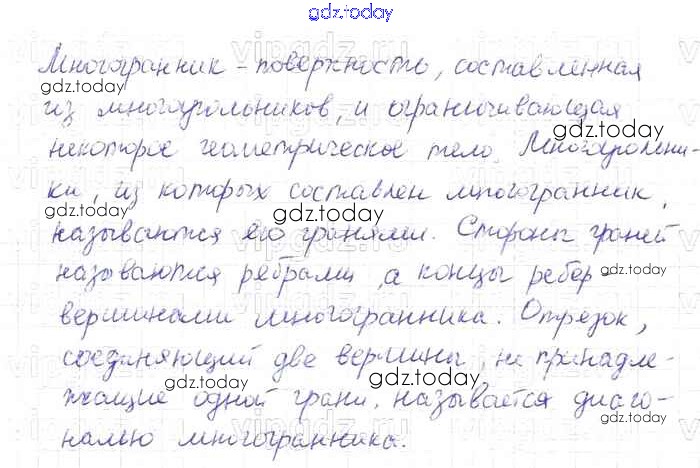 gdz.today
Многогранник - поверхность, составленная
из многоугольников, и ограничивающая
некоторое геометрическое тело. Многоугольни-
ки, из которых составлен многогранник,
называются его гранями. Стороны граней
называются ребрами, а концы ребер -
вершинами многогранника. Отрезок,
соединяющий две вершины, не принадле-
жащие одной грани, называется диаго-
налью многогранника.
gdz.today
gdz.today
gdz.today
gdz.today
gdz.today
gdz.today
gdz.today
gdz.today
gdz.today
gdz.today